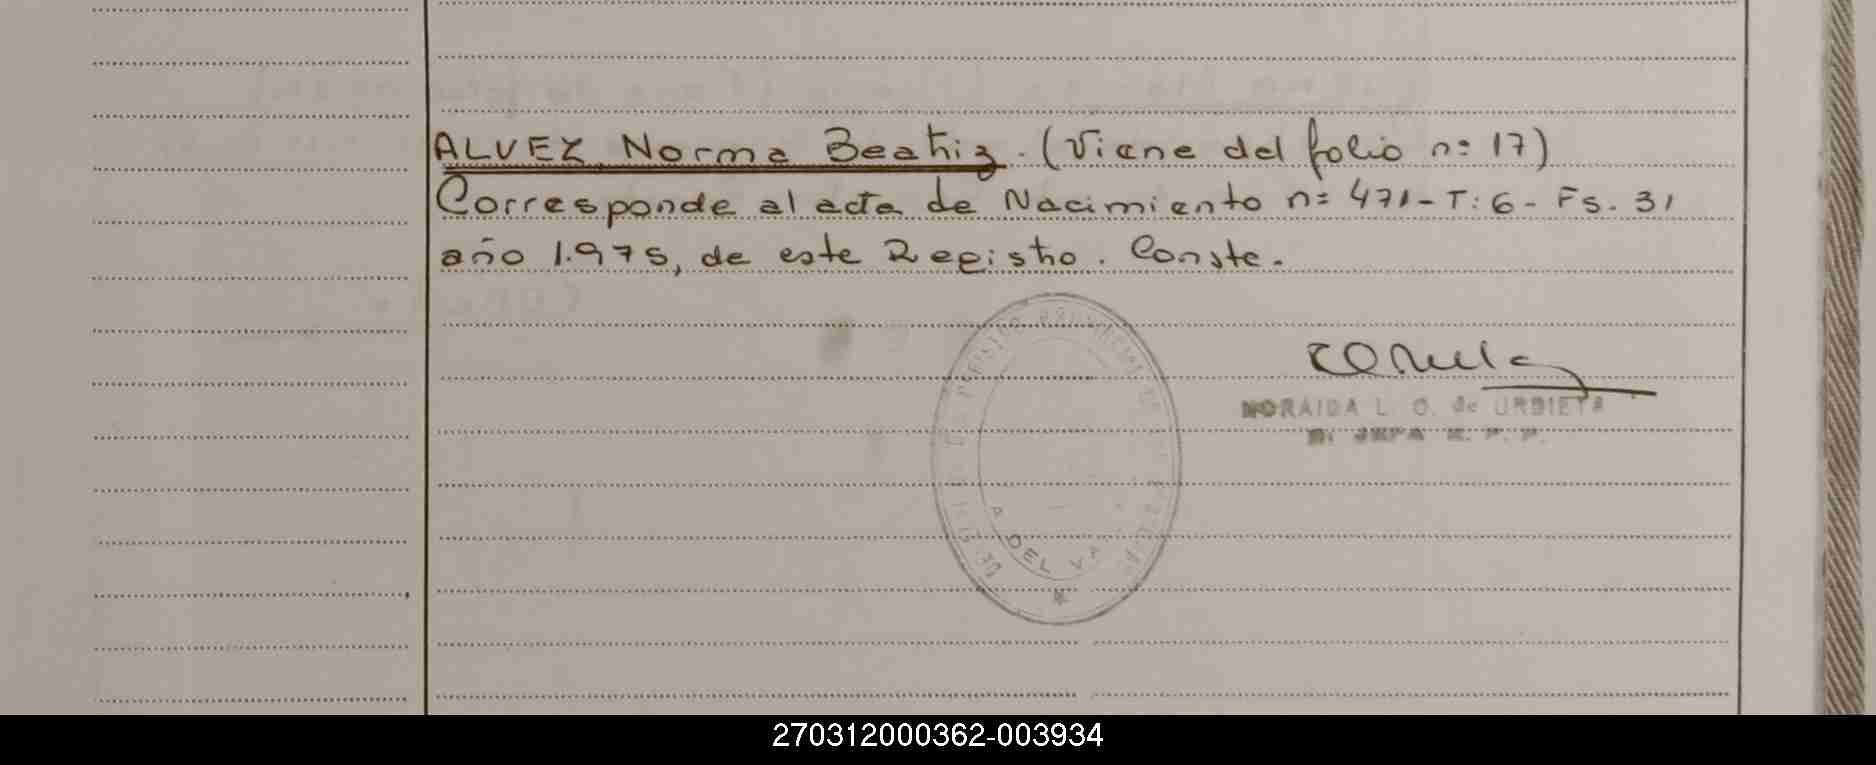 ALVEZ Norma Beatriz. (Viene del folio n: 17)
Corresponde al acta de Nacimiento n: 471- T: 6 - Fs. 31
año 1.975, de este Registro. Conste.
NORAIDA L. O. de URBIETA
JEFA
A DEL VA
270312000362-003934